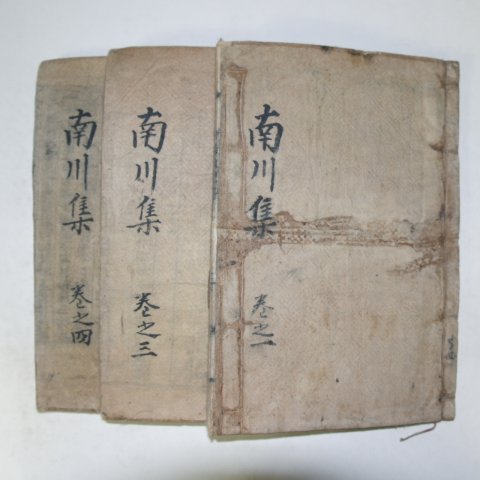 南川集
卷之一
南川集
卷之三
南川集
卷之四